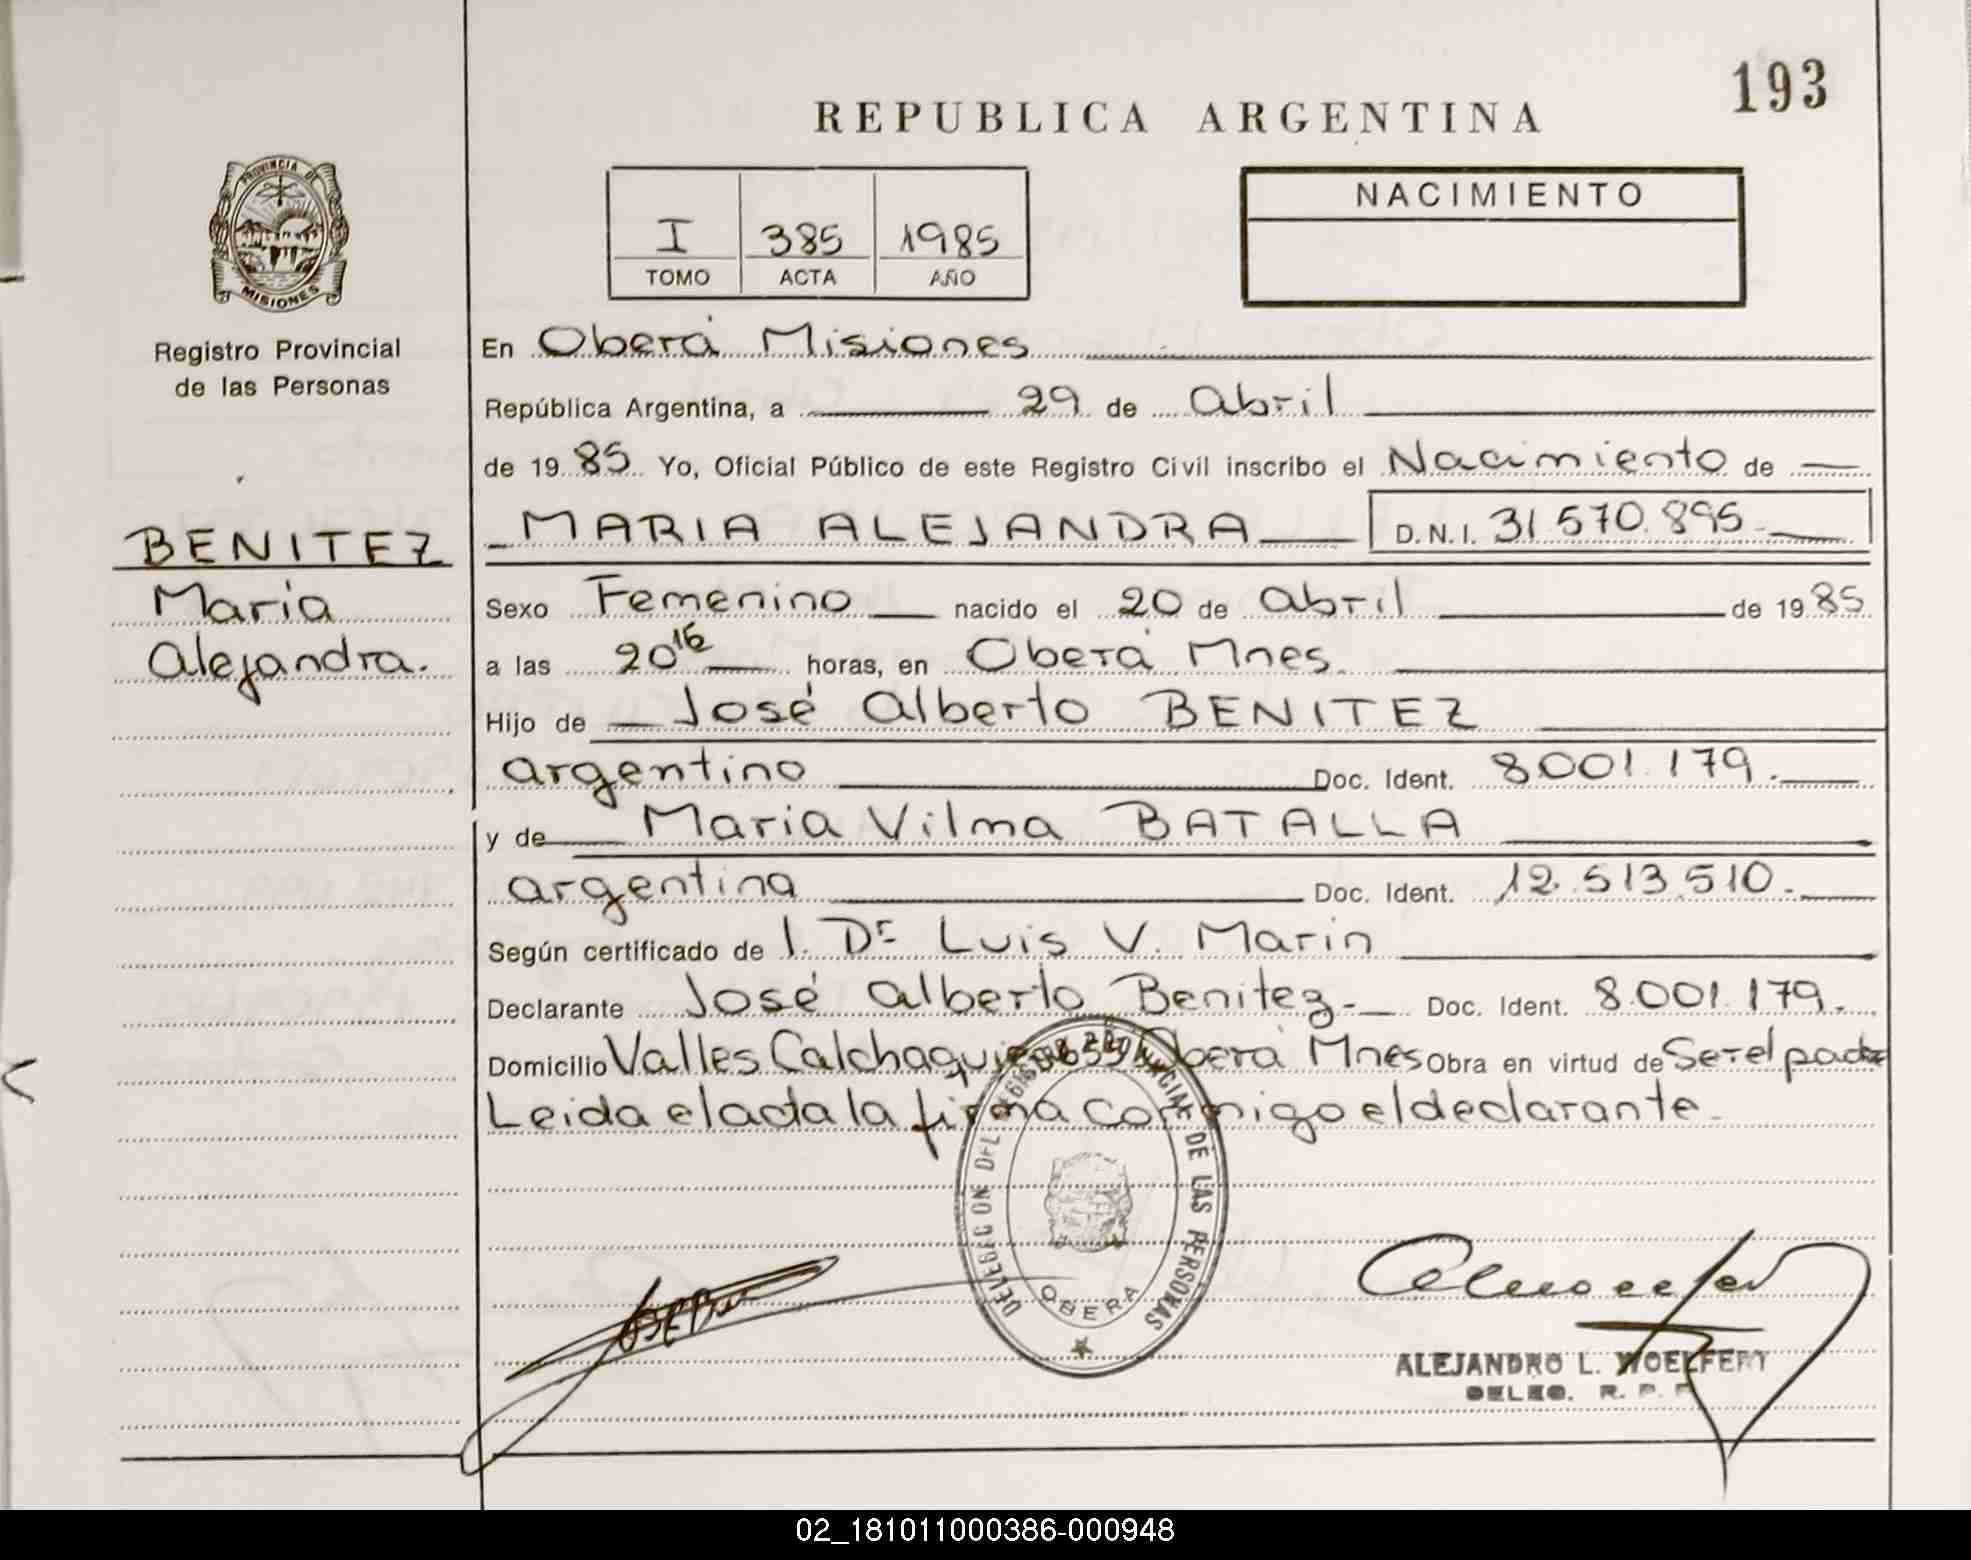 193
REPUBLICA ARGENTINA
PROVINCIA DE
MISIONES
Registro Provincial
de las Personas
I 385 1985
TOMO ACTA AÑO
NACIMIENTO
En Oberá Misiones
República Argentina, a 29 de Abril
de 1985 Yo, Oficial Público de este Registro Civil inscribo el Nacimiento de
BENITEZ
Maria
Alejandra.
MARIA ALEJANDRA D.N.I. 31.570.895
Sexo Femenino nacido el 20 de Abril de 1985
a las 20 16 horas, en Oberá Mnes.
Hijo de José Alberto BENITEZ
argentino Doc. Ident. 8.001.179.
y de Maria Vilma BATALLA
argentina Doc. Ident. 12.513.510.
Según certificado de l. Dr Luis V. Marin
Declarante José Alberto Benitez - Doc. Ident. 8.001.179.
Domicilio Valles Calchaquies Oberá Mnes Obra en virtud de Ser el padre
Leida el acta la firma conmigo el declarante.
DELEGACION DEL REGISTRO PROVINCIAL DE LAS PERSONAS
OBERA
ALEJANDRO L. WOELFERT
DELEG. R. P. P.
02_181011000386-000948